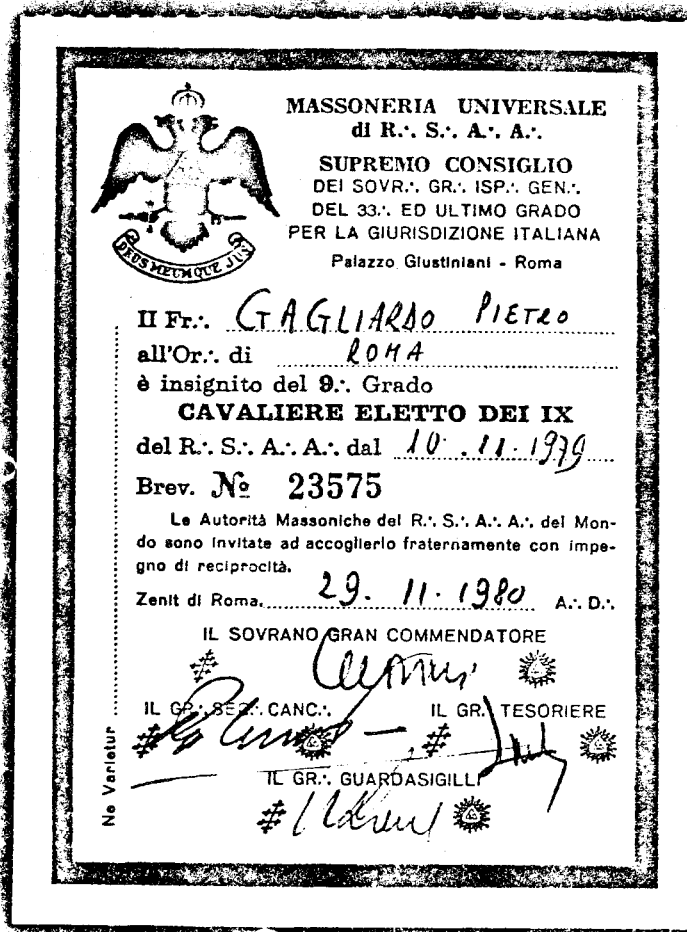 MASSONERIA UNIVERSALE
di R∴ S∴ A∴ A∴
SUPREMO CONSIGLIO
DEI SOVR∴ GR∴ ISP∴ GEN∴
DEL 33∴ ED ULTIMO GRADO
PER LA GIURISDIZIONE ITALIANA
Palazzo Giustiniani - Roma
DEUS MEUMQUE JUS
Il Fr∴ GAGLIARDO PIETRO
all'Or∴ di ROMA
è insignito del 9∴ Grado
CAVALIERE ELETTO DEI IX
del R∴ S∴ A∴ A∴ dal 10.11.1979
Brev. № 23575
Le Autorità Massoniche del R∴ S∴ A∴ A∴ del Mon-
do sono invitate ad accoglierlo fraternamente con impe-
gno di reciprocità.
Zenit di Roma, 29.11.1980 A∴ D∴
IL SOVRANO GRAN COMMENDATORE
IL GR∴ SEG∴ CANC∴ IL GR∴ TESORIERE
IL GR∴ GUARDASIGILLI
Ne Varietur